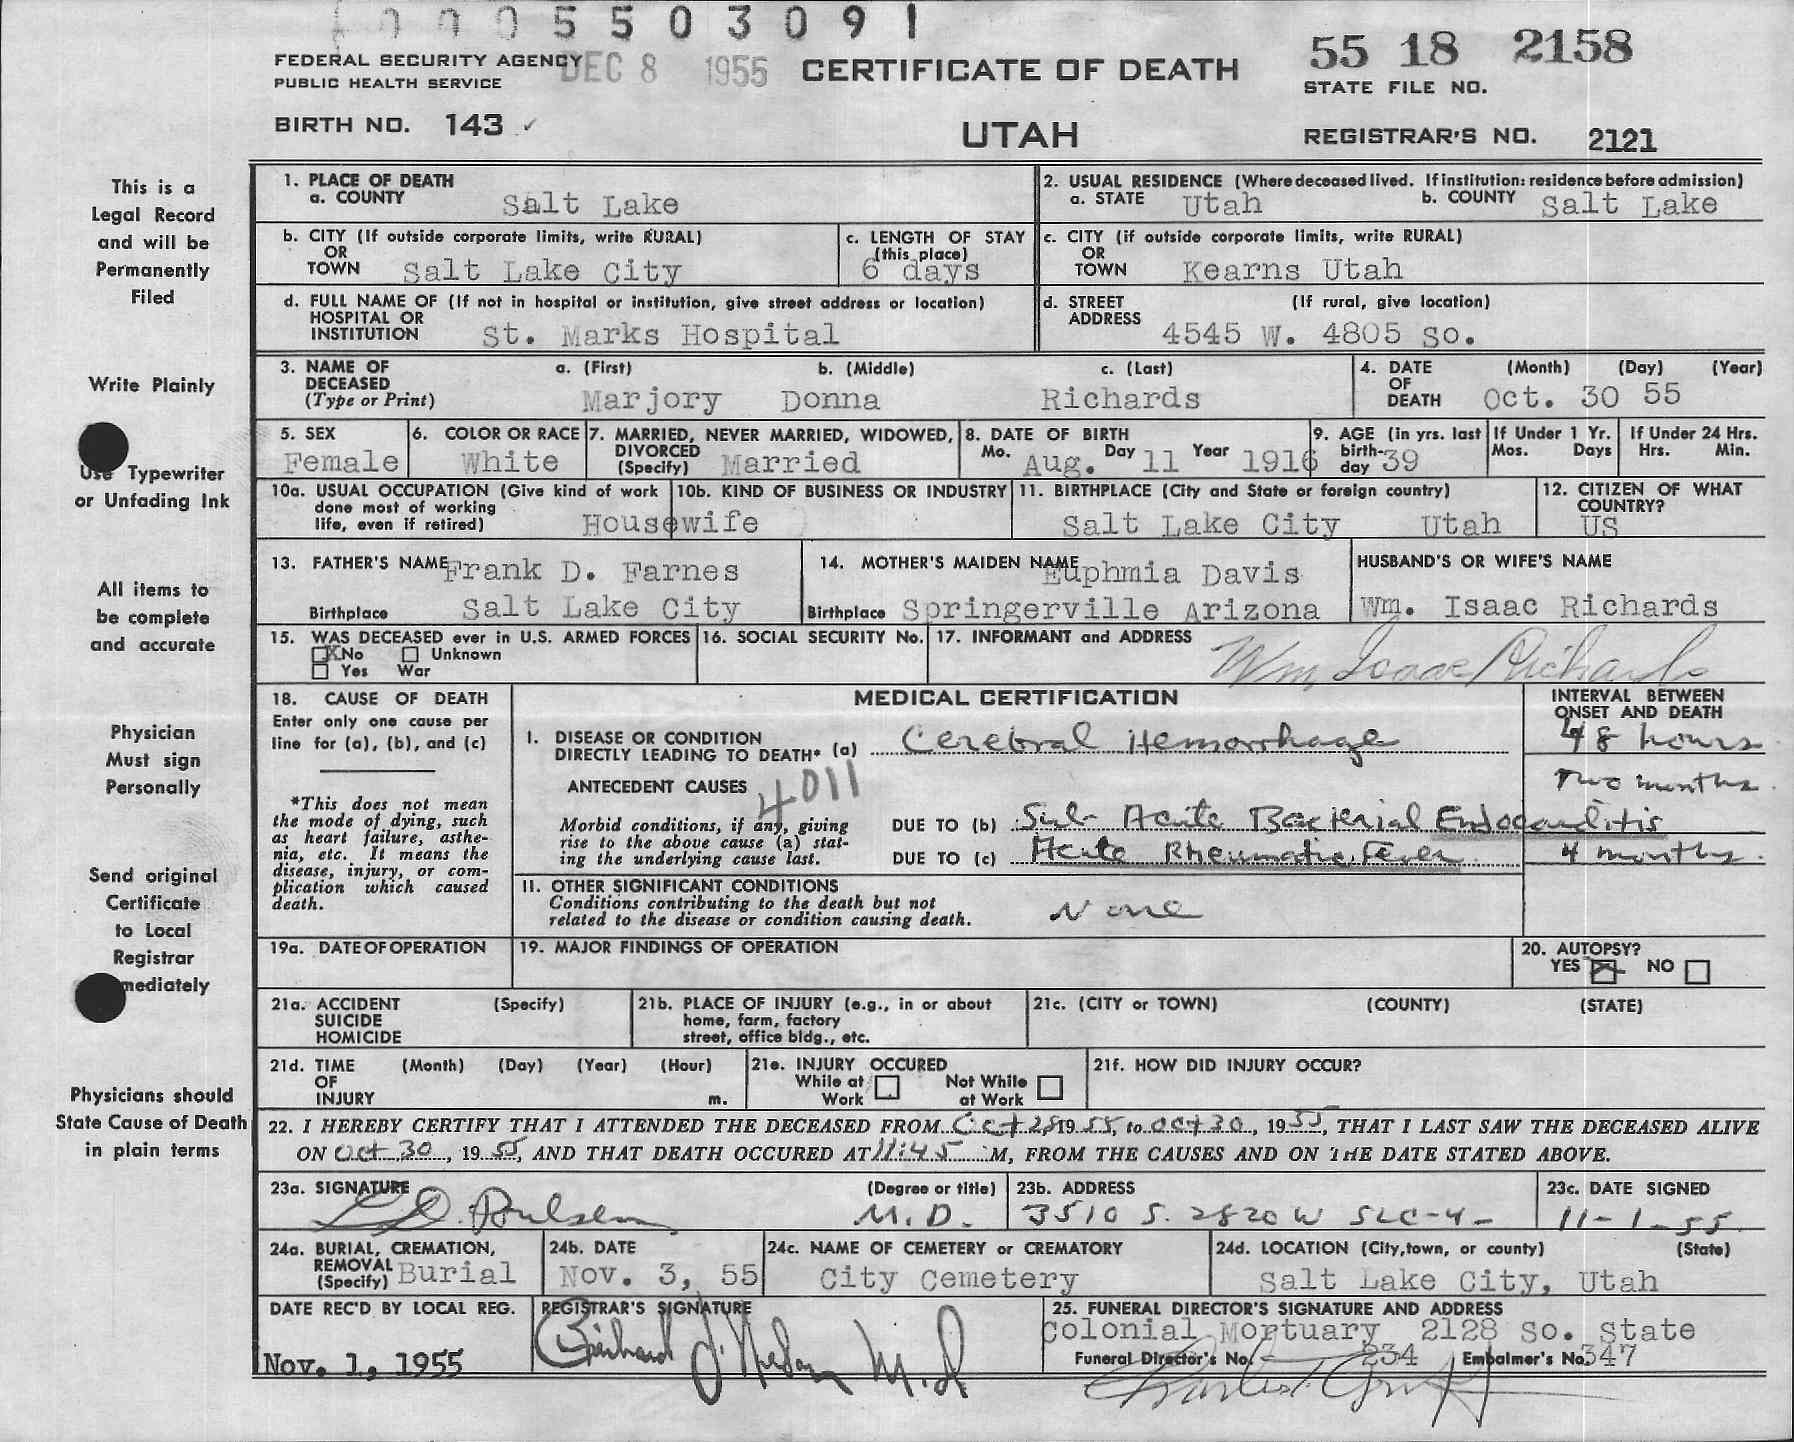 0005503091
FEDERAL SECURITY AGENCY
PUBLIC HEALTH SERVICE
DEC 8 1955
CERTIFICATE OF DEATH
55 18 2158
STATE FILE NO.
BIRTH NO. 143 ✓
UTAH
REGISTRAR'S NO. 2121
This is a
Legal Record
and will be
Permanently
Filed
Write Plainly
Use Typewriter
or Unfading Ink
All items to
be complete
and accurate
Physician
Must sign
Personally
Send original
Certificate
to Local
Registrar
mediately
Physicians should
State Cause of Death
in plain terms
1. PLACE OF DEATH
a. COUNTY Salt Lake
2. USUAL RESIDENCE (Where deceased lived. If institution: residence before admission)
a. STATE Utah b. COUNTY Salt Lake
b. CITY (If outside corporate limits, write RURAL)
OR
TOWN Salt Lake City
c. LENGTH OF STAY
(this place)
6 days
c. CITY (if outside corporate limits, write RURAL)
OR
TOWN Kearns Utah
d. FULL NAME OF (If not in hospital or institution, give street address or location)
HOSPITAL OR
INSTITUTION St. Marks Hospital
d. STREET (If rural, give location)
ADDRESS 4545 W. 4805 So.
3. NAME OF a. (First) b. (Middle) c. (Last)
DECEASED
(Type or Print) Marjory Donna Richards
4. DATE (Month) (Day) (Year)
OF
DEATH Oct. 30 55
5. SEX
Female
6. COLOR OR RACE
White
7. MARRIED, NEVER MARRIED, WIDOWED,
DIVORCED
(Specify) Married
8. DATE OF BIRTH
Mo. Aug. Day 11 Year 1916
9. AGE (in yrs. last
birth-
day 39
If Under 1 Yr.
Mos. Days
If Under 24 Hrs.
Hrs. Min.
10a. USUAL OCCUPATION (Give kind of work
done most of working
life, even if retired) Housewife
10b. KIND OF BUSINESS OR INDUSTRY
11. BIRTHPLACE (City and State or foreign country)
Salt Lake City Utah
12. CITIZEN OF WHAT
COUNTRY?
US
13. FATHER'S NAME Frank D. Farnes
Birthplace Salt Lake City
14. MOTHER'S MAIDEN NAME Euphmia Davis
Birthplace Springerville Arizona
HUSBAND'S OR WIFE'S NAME
Wm. Isaac Richards
15. WAS DECEASED ever in U.S. ARMED FORCES
X No Unknown
Yes War
16. SOCIAL SECURITY No.
17. INFORMANT and ADDRESS
Wm Isaac Richards
18. CAUSE OF DEATH
Enter only one cause per
line for (a), (b), and (c)
*This does not mean
the mode of dying, such
as heart failure, asthe-
nia, etc. It means the
disease, injury, or com-
plication which caused
death.
MEDICAL CERTIFICATION
INTERVAL BETWEEN
ONSET AND DEATH
I. DISEASE OR CONDITION
DIRECTLY LEADING TO DEATH* (a) Cerebral Hemorrhage 48 hours
ANTECEDENT CAUSES 4011
Two months
Morbid conditions, if any, giving
rise to the above cause (a) stat-
ing the underlying cause last.
DUE TO (b) Sub-Acute Bacterial Endocarditis
DUE TO (c) Acute Rheumatic Fever 4 months
11. OTHER SIGNIFICANT CONDITIONS
Conditions contributing to the death but not
related to the disease or condition causing death.
None
19a. DATE OF OPERATION
19. MAJOR FINDINGS OF OPERATION
20. AUTOPSY?
YES X NO
21a. ACCIDENT (Specify)
SUICIDE
HOMICIDE
21b. PLACE OF INJURY (e.g., in or about
home, farm, factory
street, office bldg., etc.
21c. (CITY or TOWN) (COUNTY) (STATE)
21d. TIME (Month) (Day) (Year) (Hour)
OF
INJURY m.
21e. INJURY OCCURED
While at Work Not While at Work
21f. HOW DID INJURY OCCUR?
22. I HEREBY CERTIFY THAT I ATTENDED THE DECEASED FROM Oct 28 1955, to Oct 30, 1955, THAT I LAST SAW THE DECEASED ALIVE
ON Oct 30, 1955, AND THAT DEATH OCCURED AT 11:45 M, FROM THE CAUSES AND ON THE DATE STATED ABOVE.
23a. SIGNATURE (Degree or title)
Poulsen M.D.
23b. ADDRESS
3510 S. 2820 W SLC-4-
23c. DATE SIGNED
11-1-55
24a. BURIAL, CREMATION,
REMOVAL
(Specify) Burial
24b. DATE
Nov. 3, 55
24c. NAME OF CEMETERY or CREMATORY
City Cemetery
24d. LOCATION (City, town, or county) (State)
Salt Lake City, Utah
DATE REC'D BY LOCAL REG.
Nov. 1, 1955
REGISTRAR'S SIGNATURE
M.D.
25. FUNERAL DIRECTOR'S SIGNATURE AND ADDRESS
Colonial Mortuary 2128 So. State
Funeral Director's No. 234 Embalmer's No. 347